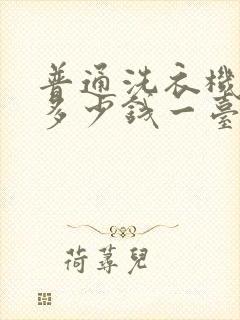 普通洗衣機
多少錢一臺
荷蕁兒